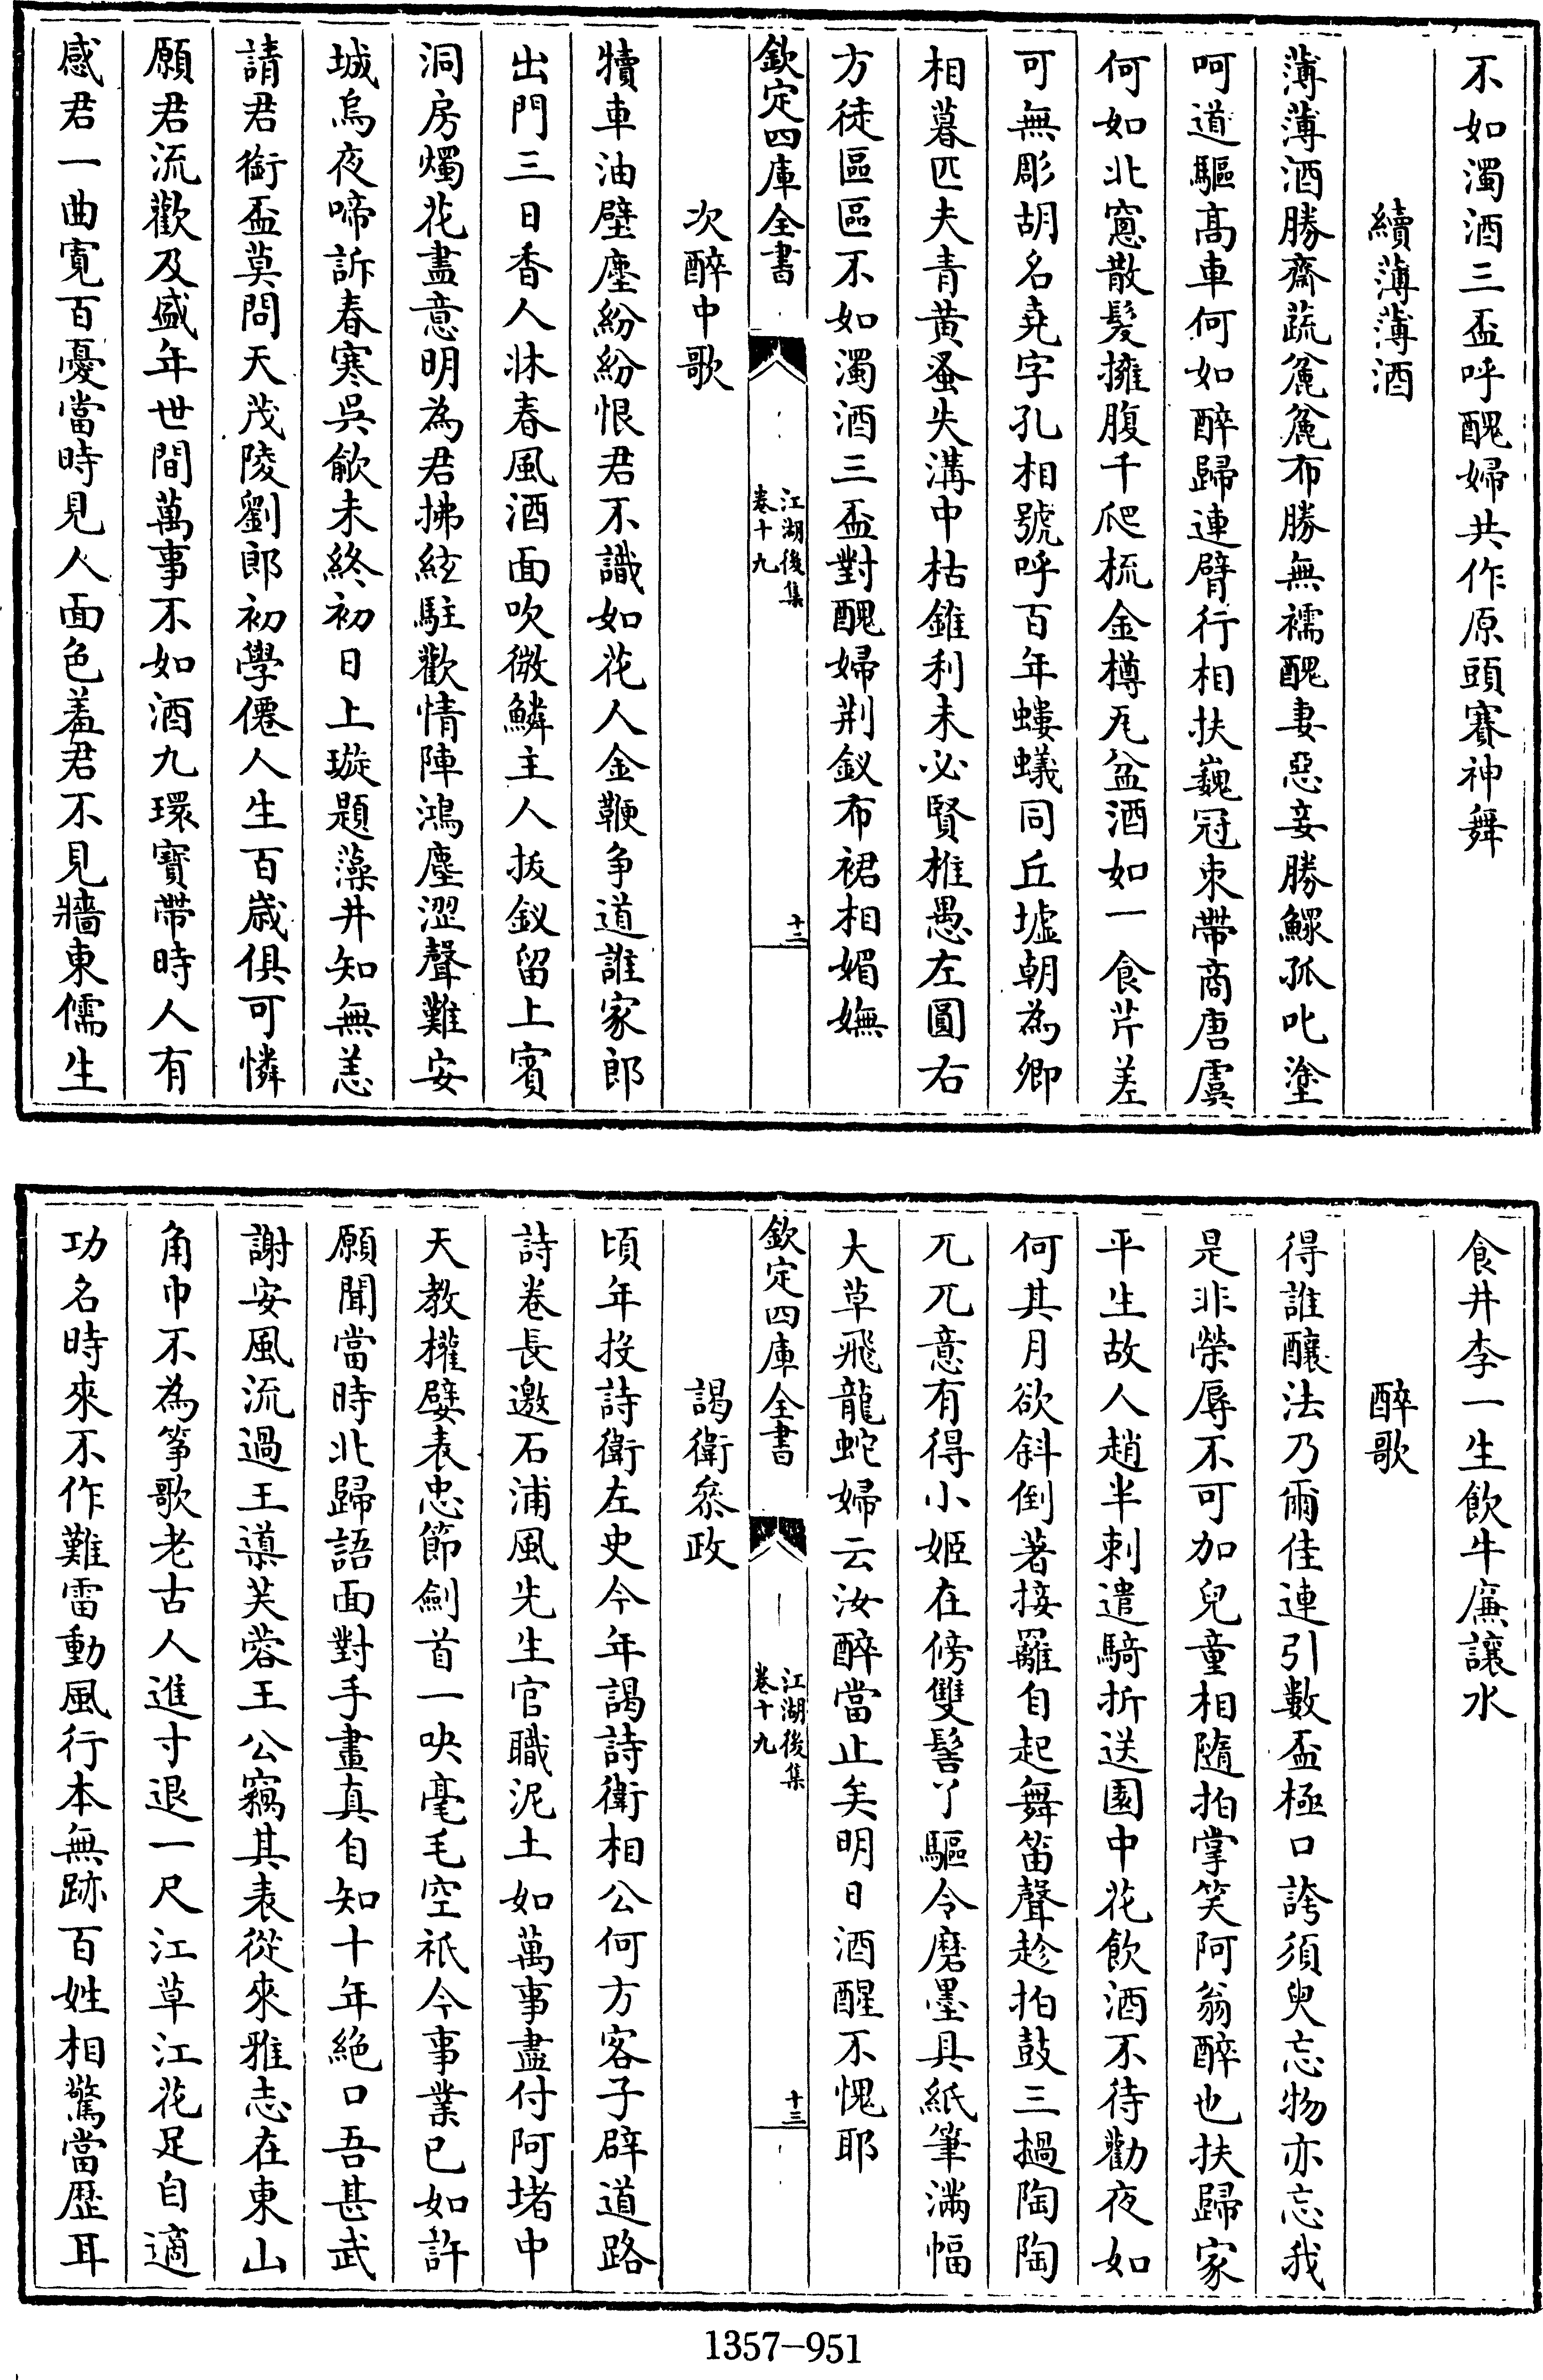 不如濁酒三盃呼醜婦共作原頭賽神舞
續薄薄酒
薄薄酒勝齋蔬麄麄布勝無襦醜妻惡妾勝鰥孤叱塗
呵道驅高車何如醉歸連臂行相扶巍冠束帶商唐虞
何如北窻散髮擁腹千爬梳金樽瓦盆酒如一食芹差
可無彫胡名堯字孔相號呼百年螻蟻同丘墟朝為卿
相暮匹夫青黃蚤失溝中枯錐利未必賢椎愚左圓右
方徒區區不如濁酒三盃對醜婦荆釵布裙相媚嫵
欽定四庫全書
江湖後集
卷十九
十二
次醉中歌
犢車油壁塵紛紛恨君不識如花人金鞭争道誰家郎
出門三日香人牀春風酒面吹微鱗主人拔釵留上賓
洞房燭花盡意明為君拂絃駐歡情陣鴻塵澀聲難安
城烏夜啼訴春寒吳歈未終初日上璇題藻井知無恙
請君銜盃莫問天茂陵劉郎初學僊人生百歲俱可憐
願君流歡及盛年世間萬事不如酒九環寶帶時人有
感君一曲寬百憂當時見人面色羞君不見牆東儒生
食井李一生飲牛廉讓水
醉歌
得誰釀法乃爾佳連引數盃極口誇須臾忘物亦忘我
是非榮辱不可加兒童相隨拍掌笑阿翁醉也扶歸家
平生故人趙半刺遣騎折送園中花飲酒不待勸夜如
何其月欲斜倒著接䍦自起舞笛聲趁拍鼓三撾陶陶
兀兀意有得小姬在傍雙髻丫驅令磨墨具紙筆滿幅
大草飛龍蛇婦云汝醉當止矣明日酒醒不愧耶
欽定四庫全書
江湖後集
卷十九
十三
謁衛叅政
頃年投詩衛左史今年謁詩衛相公何方客子辟道路
詩卷長邀石浦風先生官職泥土如萬事盡付阿堵中
天教權嬖表忠節劍首一吷毫毛空祇今事業已如許
願聞當時北歸語面對手畫真自知十年絶口吾甚武
謝安風流過王導芙蓉王公竊其表從來雅志在東山
角巾不為箏歌老古人進寸退一尺江草江花足自適
功名時來不作難雷動風行本無跡百姓相驚當歴耳
1357-951